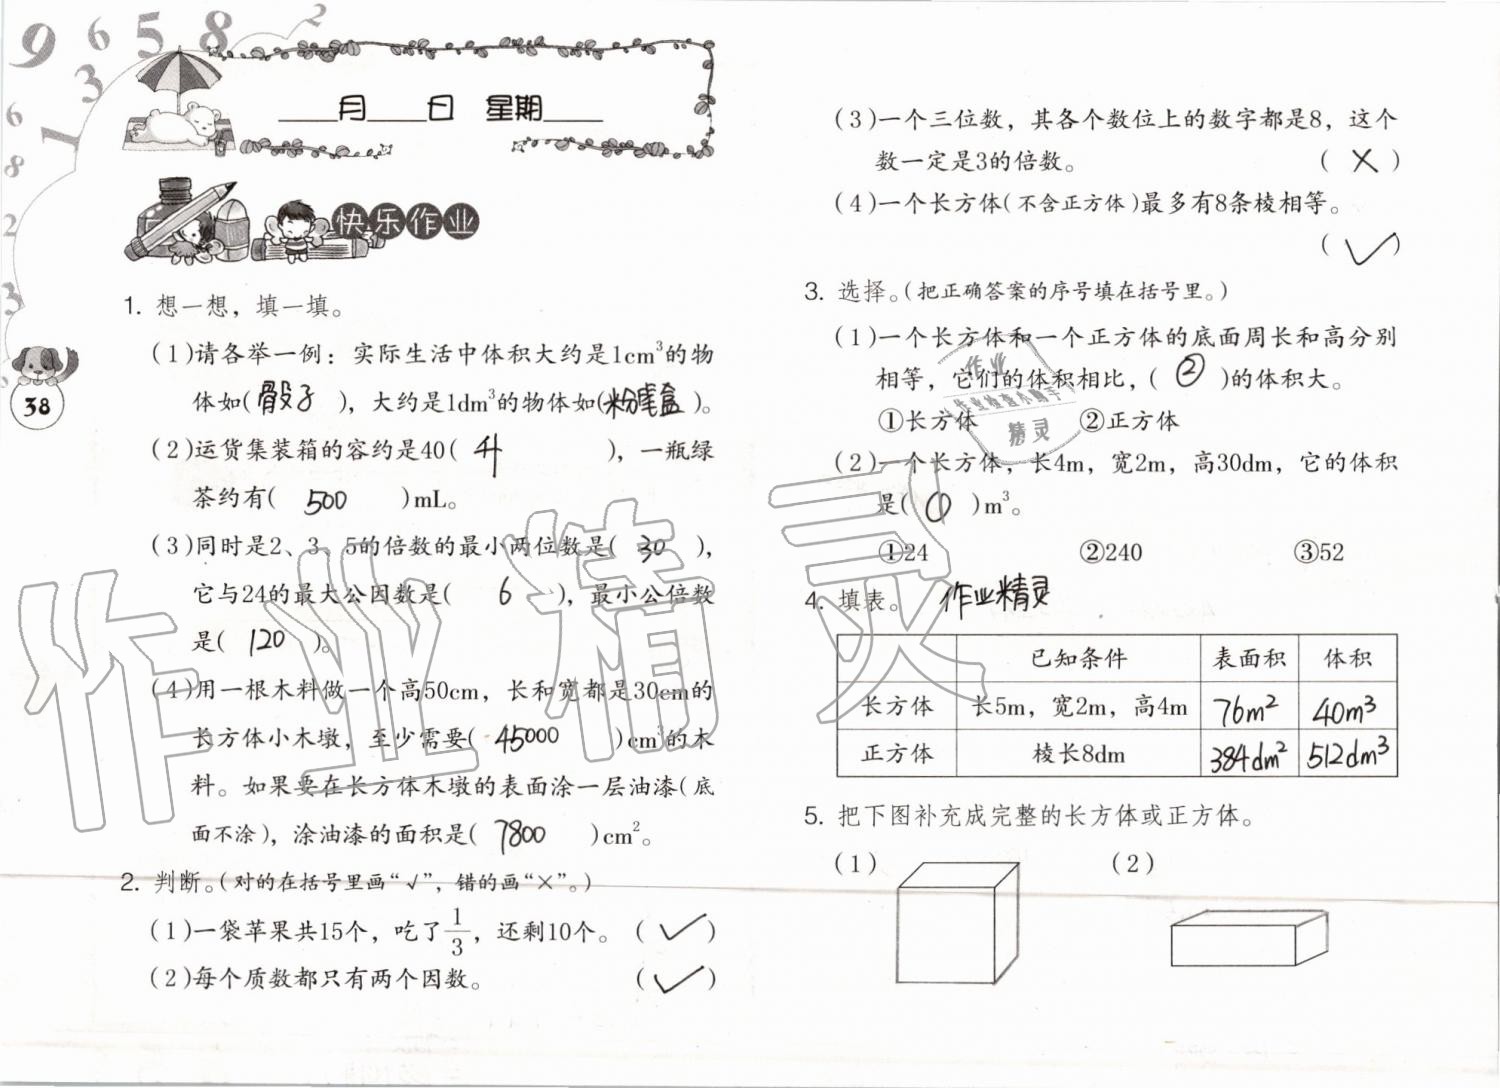 9 6 5 8 2
3
6 1
8
2
3
38
____月____日 星期____
快乐作业
1. 想一想，填一填。
(1)请各举一例：实际生活中体积大约是1cm³的物
体如( 骰子 )，大约是1dm³的物体如(粉笔盒)。
(2)运货集装箱的容约是40( 升 )，一瓶绿
茶约有( 500 )mL。
(3)同时是2、3、5的倍数的最小两位数是( 30 )，
它与24的最大公因数是( 6 )，最小公倍数
是( 120 )。
(4)用一根木料做一个高50cm，长和宽都是30cm的
长方体小木墩，至少需要( 45000 )cm³的木
料。如果要在长方体木墩的表面涂一层油漆(底
面不涂)，涂油漆的面积是( 7800 )cm²。
2. 判断。(对的在括号里画“√”，错的画“×”。)
(1)一袋苹果共15个，吃了1/3，还剩10个。 ( ✓ )
(2)每个质数都只有两个因数。 ( ✓ )
(3)一个三位数，其各个数位上的数字都是8，这个
数一定是3的倍数。 ( × )
(4)一个长方体(不含正方体)最多有8条棱相等。
( ✓ )
3. 选择。(把正确答案的序号填在括号里。)
(1)一个长方体和一个正方体的底面周长和高分别
相等，它们的体积相比，( ② )的体积大。
①长方体 ②正方体
(2)一个长方体，长4m，宽2m，高30dm，它的体积
是( ① )m³。
①24 ②240 ③52
4. 填表。 作业精灵
已知条件 表面积 体积
长方体 长5m，宽2m，高4m 76m² 40m³
正方体 棱长8dm 384dm² 512dm³
5. 把下图补充成完整的长方体或正方体。
(1) (2)
作业精灵
作业
作业检查小助手
精灵